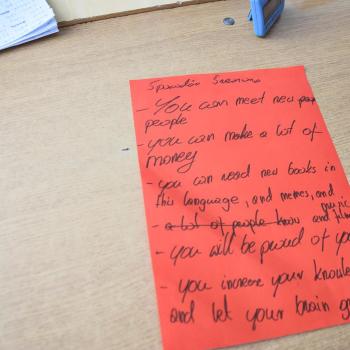 - You can meet new
people
- you can make a lot of
money
- you can read new books in
this language, and memes, and
music
- a lot of people know and
- you will be proud of
- you increase your
and let your brain